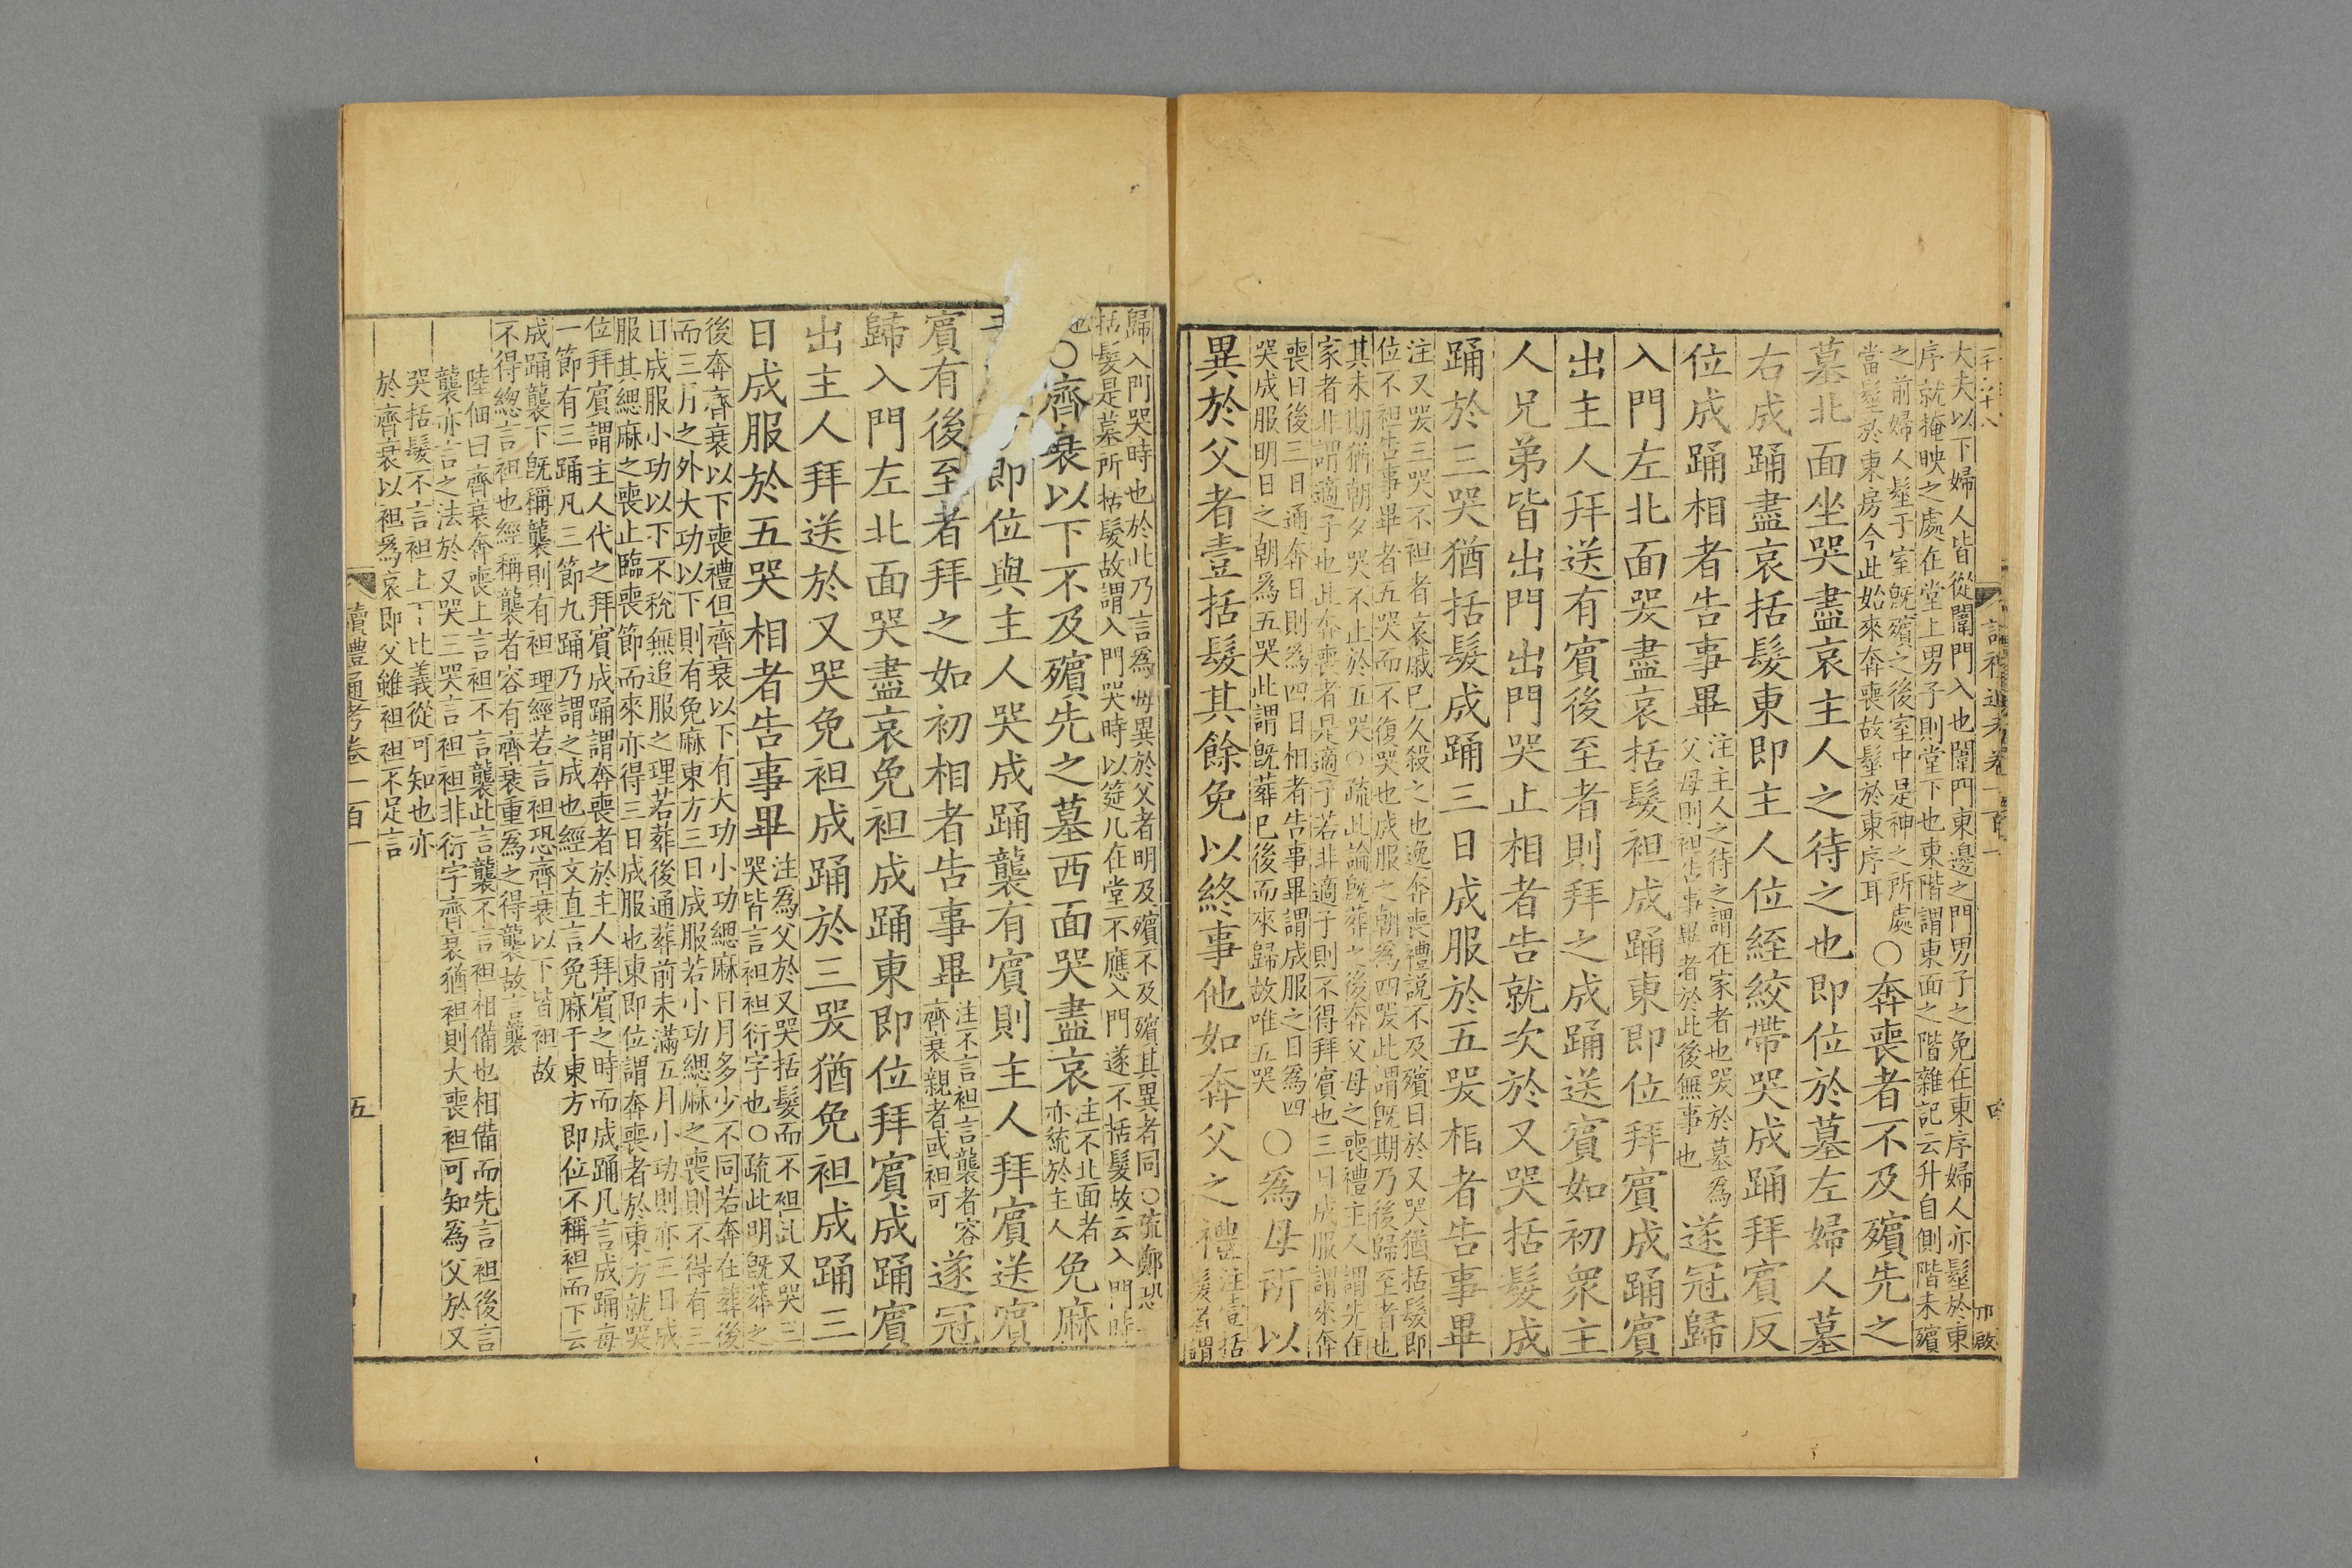 讀禮通考卷一百一
四
大夫以下婦人皆從闈門入也闈門東邊之門男子之免在東序婦人亦髽於東
序就掩映之處在堂上男子則堂下也東階謂東面之階雜記云升自側階未殯
之前婦人髽于室既殯之後室中是神之所處
當髽於東房今此始來奔喪故髽於東序耳
○奔喪者不及殯先之
墓北面坐哭盡哀主人之待之也即位於墓左婦人墓
右成踊盡哀括髮東即主人位絰絞帶哭成踊拜賓反
位成踊相者告事畢
注主人之待之謂在家者也哭於墓為
父母則袒告事畢者於此後無事也
遂冠歸
入門左北面哭盡哀括髮袒成踊東即位拜賓成踊賓
出主人拜送有賓後至者則拜之成踊送賓如初衆主
人兄弟皆出門出門哭止相者告就次於又哭括髮成
踊於三哭猶括髮成踊三日成服於五哭相者告事畢
注又哭三哭不袒者哀戚已久殺之也逸奔喪禮說不及殯日於又哭猶括髮即
位不袒告事畢者五哭而不復哭也成服之朝為四哭此謂既期乃後歸至者也
其未期猶朝夕哭不止於五哭○疏此論既葬之後奔父母之喪禮主人謂先在
家者非謂適子也此奔喪者是適子若非適子則不得拜賓也三日成服謂來奔
喪日後三日通奔日則為四日相者告事畢謂成服之日為四
哭成服明日之朝為五哭此謂既葬已後而來歸故唯五哭
○為母所以
異於父者壹括髮其餘免以終事他如奔父之禮
注壹括
髮者謂
歸入門哭時也於此乃言為母異於父者明及殯不及殯其異者同○疏鄭恐
括髮是墓所括髮故謂入門哭時以筵几在堂不應入門遂不括髮故云入門哇
也
○齊衰以下不及殯先之墓西面哭盡哀
注不北面者
亦統於主人
免麻
于東方即位與主人哭成踊襲有賓則主人拜賓送賓
賓有後至者拜之如初相者告事畢
注不言袒言襲者容
齊衰親者或袒可
遂冠
歸入門左北面哭盡哀免袒成踊東即位拜賓成踊賓
出主人拜送於又哭免袒成踊於三哭猶免袒成踊三
日成服於五哭相者告事畢
注為父於又哭括髮而不袒此又哭三
哭皆言袒袒衍字也○疏此明既葬之
後奔齊衰以下喪禮但齊衰以下有大功小功緦麻日月多少不同若奔在葬後
而三月之外大功以下則有免麻東方三日成服若小功緦麻之喪則不得有三
日成服小功以下不稅無追服之理若葬後通葬前未滿五月小功則亦三日成
服其緦麻之喪止臨喪節而來亦得三日成服也東即位謂奔喪者於東方就哭
位拜賓謂主人代之拜賓成踊謂奔喪者於主人拜賓之時而成踊凡言成踊每
一節有三踊凡三節九踊乃謂之成也經文直言免麻于東方即位不稱袒而下云
成踊襲下既稱襲則有袒理經若言袒恐齊衰以下皆袒故
不得總言袒也經稱襲者容有齊衰重為之得襲故言襲
陸佃曰齊衰奔喪上言袒不言襲此言襲不言袒相備也相備而先言袒後言
襲亦言之法於又哭三哭言袒袒非衍字齊衰猶袒則大喪袒可知為父於又
哭括髮不言袒上下比義從可知也亦
於齊衰以袒為哀即父雖袒袒不足言
讀禮通考卷一百一
五